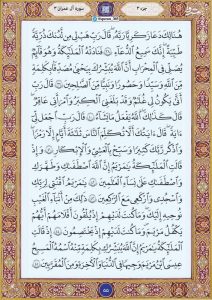 جزء ٣
سورة آل عمران ٣
هُنَالِكَ دَعَا زَكَرِيَّا رَبَّهُۥ قَالَ رَبِّ هَبْ لِى مِن لَّدُنكَ ذُرِّيَّةً
طَيِّبَةً إِنَّكَ سَمِيعُ ٱلدُّعَآءِ ٣٨ فَنَادَتْهُ ٱلْمَلَـٰٓئِكَةُ وَهُوَ قَآئِمٌ
يُصَلِّى فِى ٱلْمِحْرَابِ أَنَّ ٱللَّهَ يُبَشِّرُكَ بِيَحْيَىٰ مُصَدِّقًۢا بِكَلِمَةٍ
مِّنَ ٱللَّهِ وَسَيِّدًا وَحَصُورًا وَنَبِيًّا مِّنَ ٱلصَّـٰلِحِينَ ٣٩ قَالَ رَبِّ
أَنَّىٰ يَكُونُ لِى غُلَـٰمٌ وَقَدْ بَلَغَنِىَ ٱلْكِبَرُ وَٱمْرَأَتِى عَاقِرٌ
قَالَ كَذَٰلِكَ ٱللَّهُ يَفْعَلُ مَا يَشَآءُ ٤٠ قَالَ رَبِّ ٱجْعَل لِّىٓ
ءَايَةً قَالَ ءَايَتُكَ أَلَّا تُكَلِّمَ ٱلنَّاسَ ثَلَـٰثَةَ أَيَّامٍ إِلَّا رَمْزًا
وَٱذْكُر رَّبَّكَ كَثِيرًا وَسَبِّحْ بِٱلْعَشِىِّ وَٱلْإِبْكَـٰرِ ٤١ وَإِذْ
قَالَتِ ٱلْمَلَـٰٓئِكَةُ يَـٰمَرْيَمُ إِنَّ ٱللَّهَ ٱصْطَفَىٰكِ وَطَهَّرَكِ
وَٱصْطَفَىٰكِ عَلَىٰ نِسَآءِ ٱلْعَـٰلَمِينَ ٤٢ يَـٰمَرْيَمُ ٱقْنُتِى لِرَبِّكِ
وَٱسْجُدِى وَٱرْكَعِى مَعَ ٱلرَّٰكِعِينَ ٤٣ ذَٰلِكَ مِنْ أَنۢبَآءِ ٱلْغَيْبِ
نُوحِيهِ إِلَيْكَ وَمَا كُنتَ لَدَيْهِمْ إِذْ يُلْقُونَ أَقْلَـٰمَهُمْ أَيُّهُمْ
يَكْفُلُ مَرْيَمَ وَمَا كُنتَ لَدَيْهِمْ إِذْ يَخْتَصِمُونَ ٤٤ إِذْ قَالَتِ
ٱلْمَلَـٰٓئِكَةُ يَـٰمَرْيَمُ إِنَّ ٱللَّهَ يُبَشِّرُكِ بِكَلِمَةٍ مِّنْهُ ٱسْمُهُ ٱلْمَسِيحُ
عِيسَى ٱبْنُ مَرْيَمَ وَجِيهًا فِى ٱلدُّنْيَا وَٱلْـَٔاخِرَةِ وَمِنَ ٱلْمُقَرَّبِينَ ٤٥
٥٥